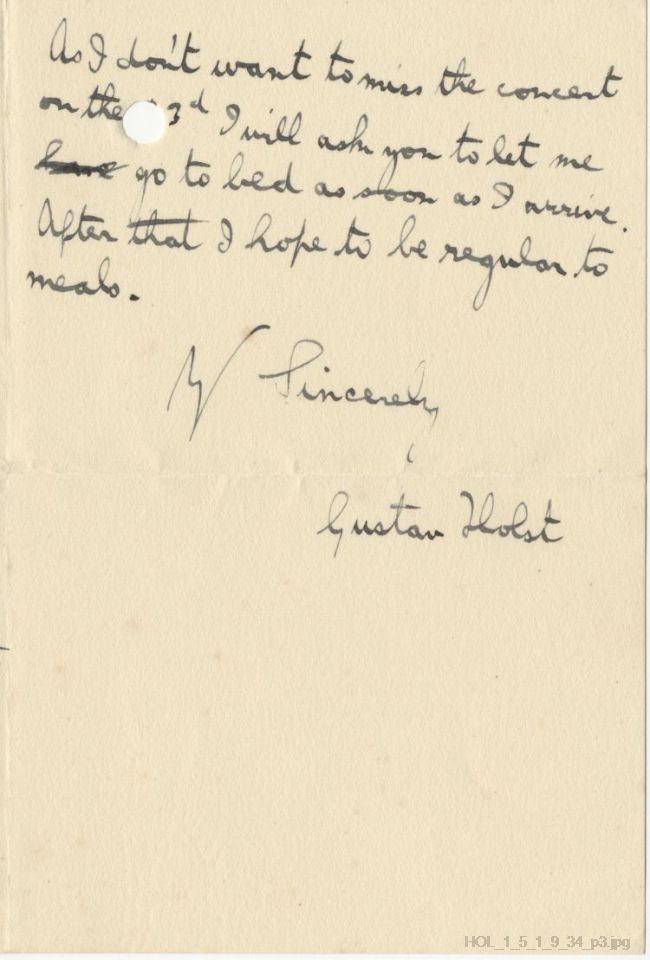 As I don't want to miss the concert
on the 3d I will ask you to let me
have go to bed as soon as I arrive.
After that I hope to be regular to
meals.
Y Sincerely
Gustav Holst
HOL_1_5_1_9_34_p3.jpg